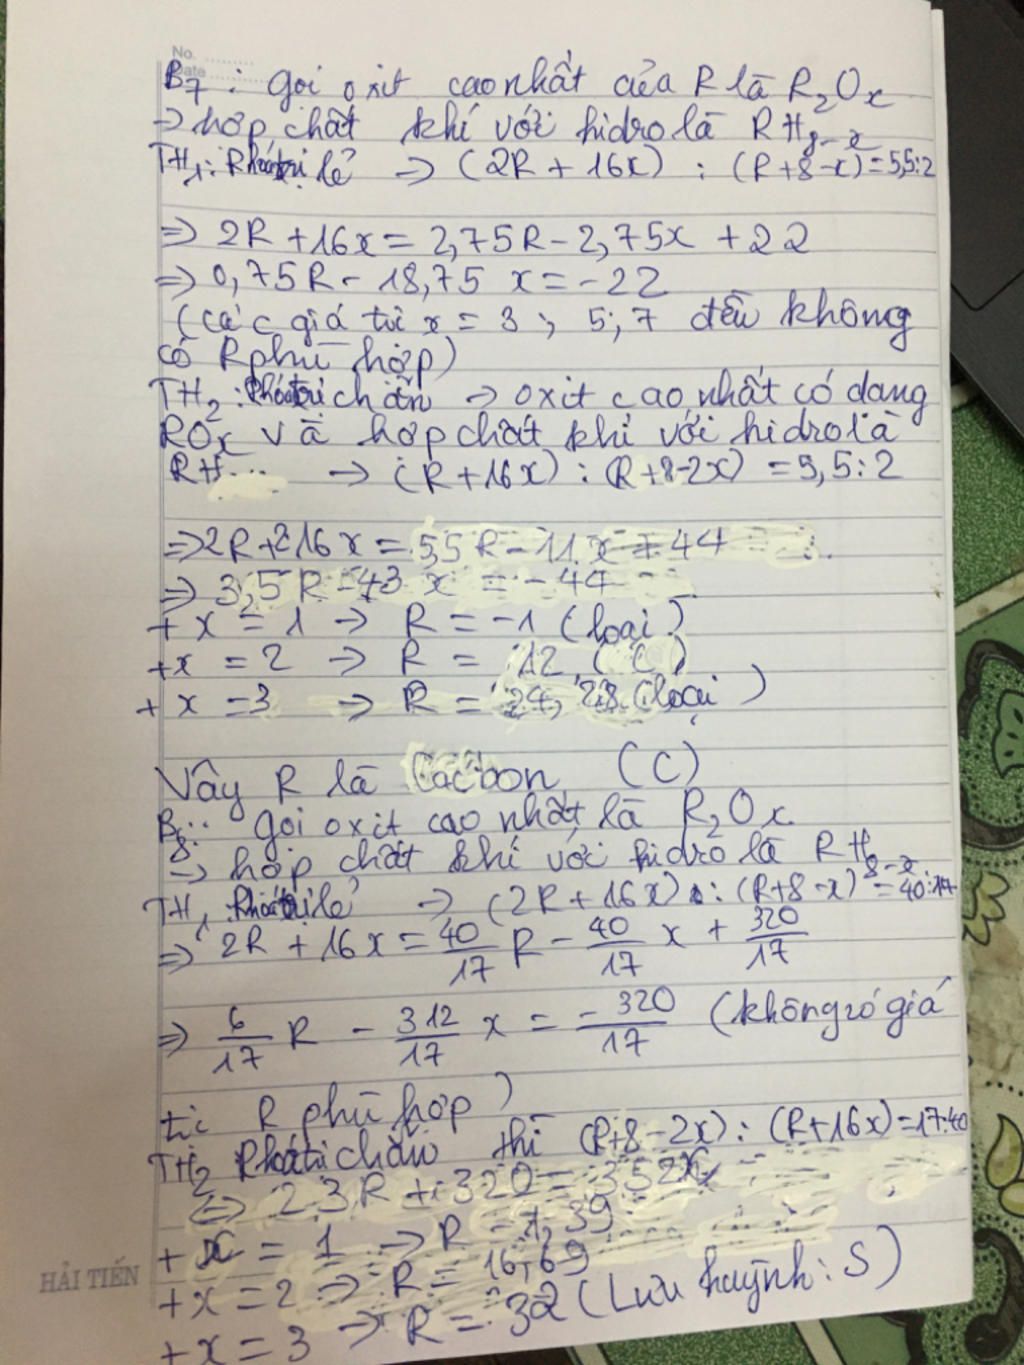 No.
Date
B7 : Gọi oxit cao nhất của R là R₂Oₓ
→ hợp chất khí với hidro là RH₈₋ₓ
TH₁: R hóa trị lẻ → (2R + 16x) : (R+8-x) = 5,5:2
⇒ 2R + 16x = 2,75R - 2,75x + 22
⇒ 0,75R - 18,75 x = -22
(các giá trị x = 3 ; 5; 7 đều không
có R phù hợp)
TH₂: R hóa trị chẵn → oxit cao nhất có dạng
ROₓ và hợp chất khí với hidro là
RH... → (R+16x) : (R+8-2x) = 5,5:2
⇒ 2R+216x = 5,5R - 11x + 44
⇒ 3,5R - 43 x = - 44
+ x = 1 → R = -1 (loại)
+x = 2 → R = 12 (C)
+ x = 3 → R = 24,28 (loại)
Vậy R là Cacbon (C)
B8: Gọi oxit cao nhất là R₂Oₓ
→ hợp chất khí với hidro là RH₈₋ₓ
TH₁ R hóa trị lẻ → (2R + 16x) : (R+8-x) = 40:17
⇒ 2R + 16x = 40/17 R - 40/17 x + 320/17
⇒ 6/17 R - 312/17 x = - 320/17 (không có giá
trị R phù hợp)
TH₂ R hóa trị chẵn thì (R+8-2x) : (R+16x) = 17:40
⇔ 23R + 320 = 352x
+ x = 1 → R = 1,39
+x = 2 → R = 16,69
+x = 3 → R = 32 (Lưu huỳnh: S)
HẢI TIẾN